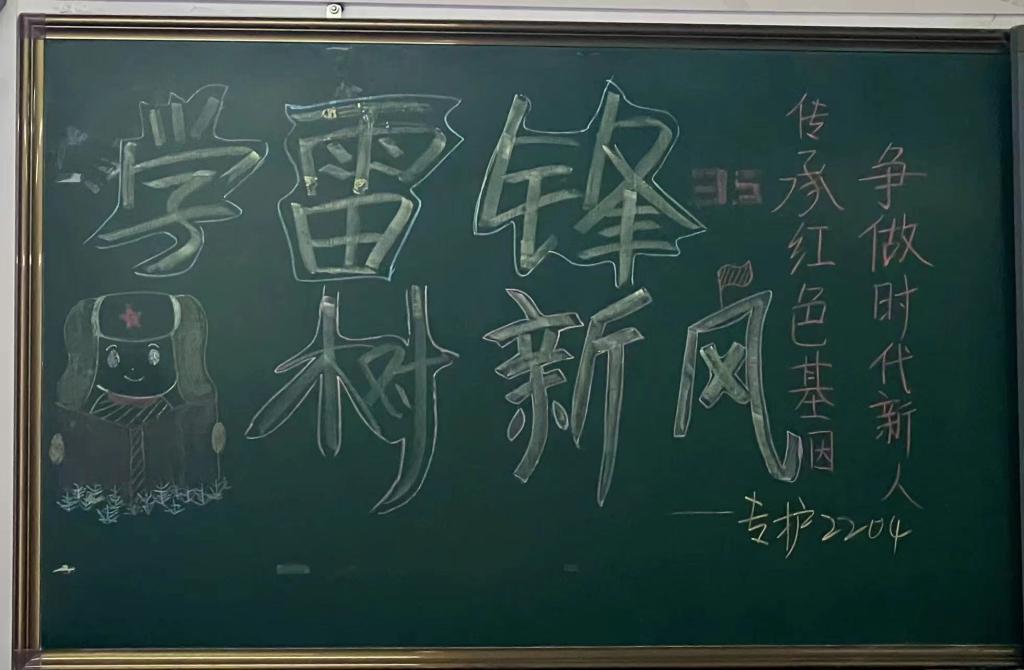 学雷锋
树新风
争做时代新人
传承红色基因
——专护2204